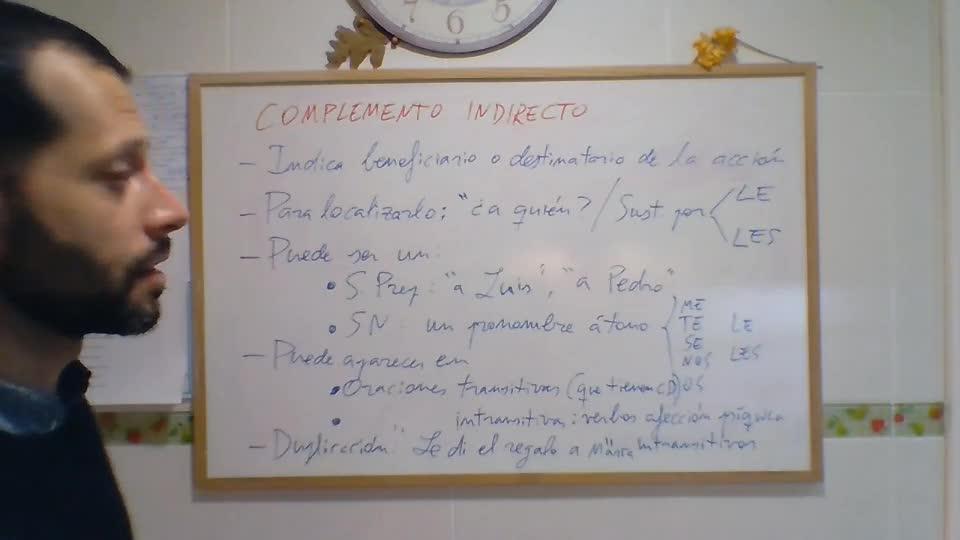 7 6 5
COMPLEMENTO INDIRECTO
- Indica beneficiario o destinatario de la acción
- Para localizarlo: "¿a quién? / Sust por LE
LES
- Puede ser un:
• S. Prep: "a Luis", "a Pedro"
• SN: un pronombre átono ME TE SE NOS OS LE LES
- Puede aparecer en
• Oraciones transitivas (que tienen CD)
• intransitivas: verbos afección psíquica
intransitivos
- Duplicación: "Le di el regalo a María